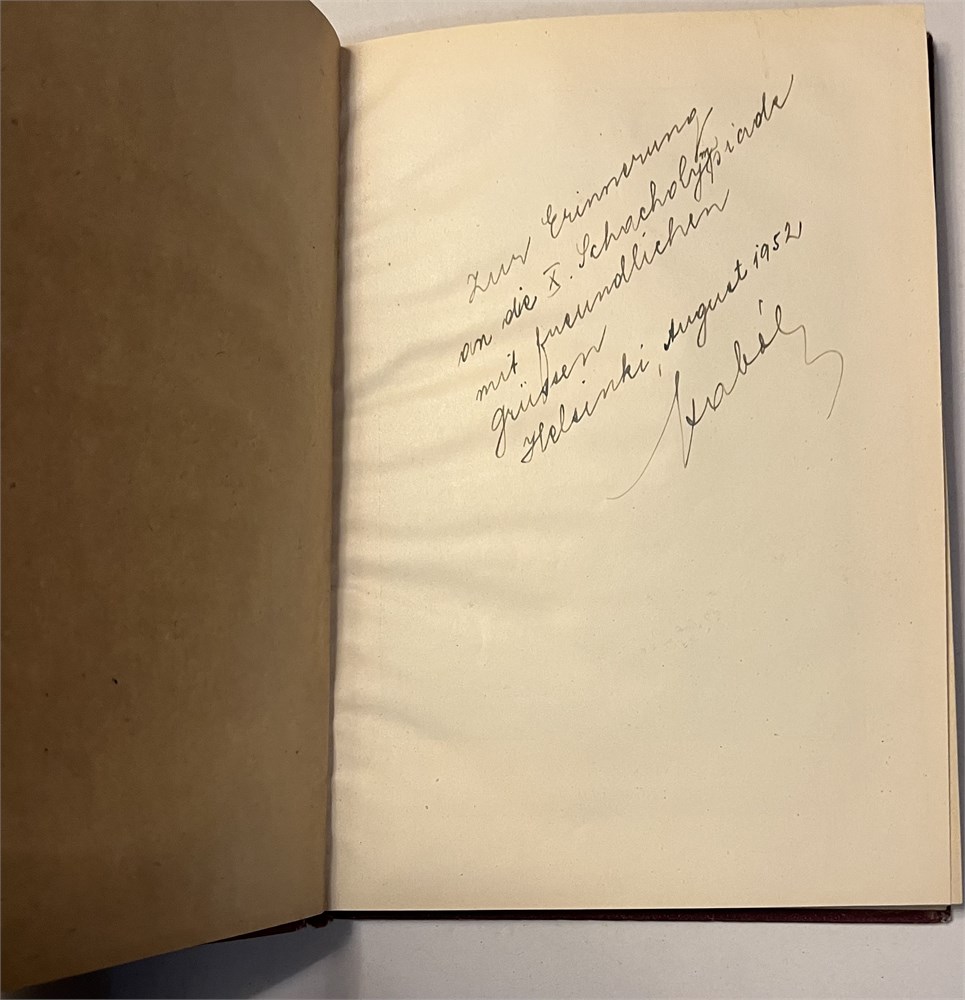 Zur Erinnerung
an die X. Schacholympiade
mit freundlichen
grüssen
Helsinki, August 1952
Szabó L